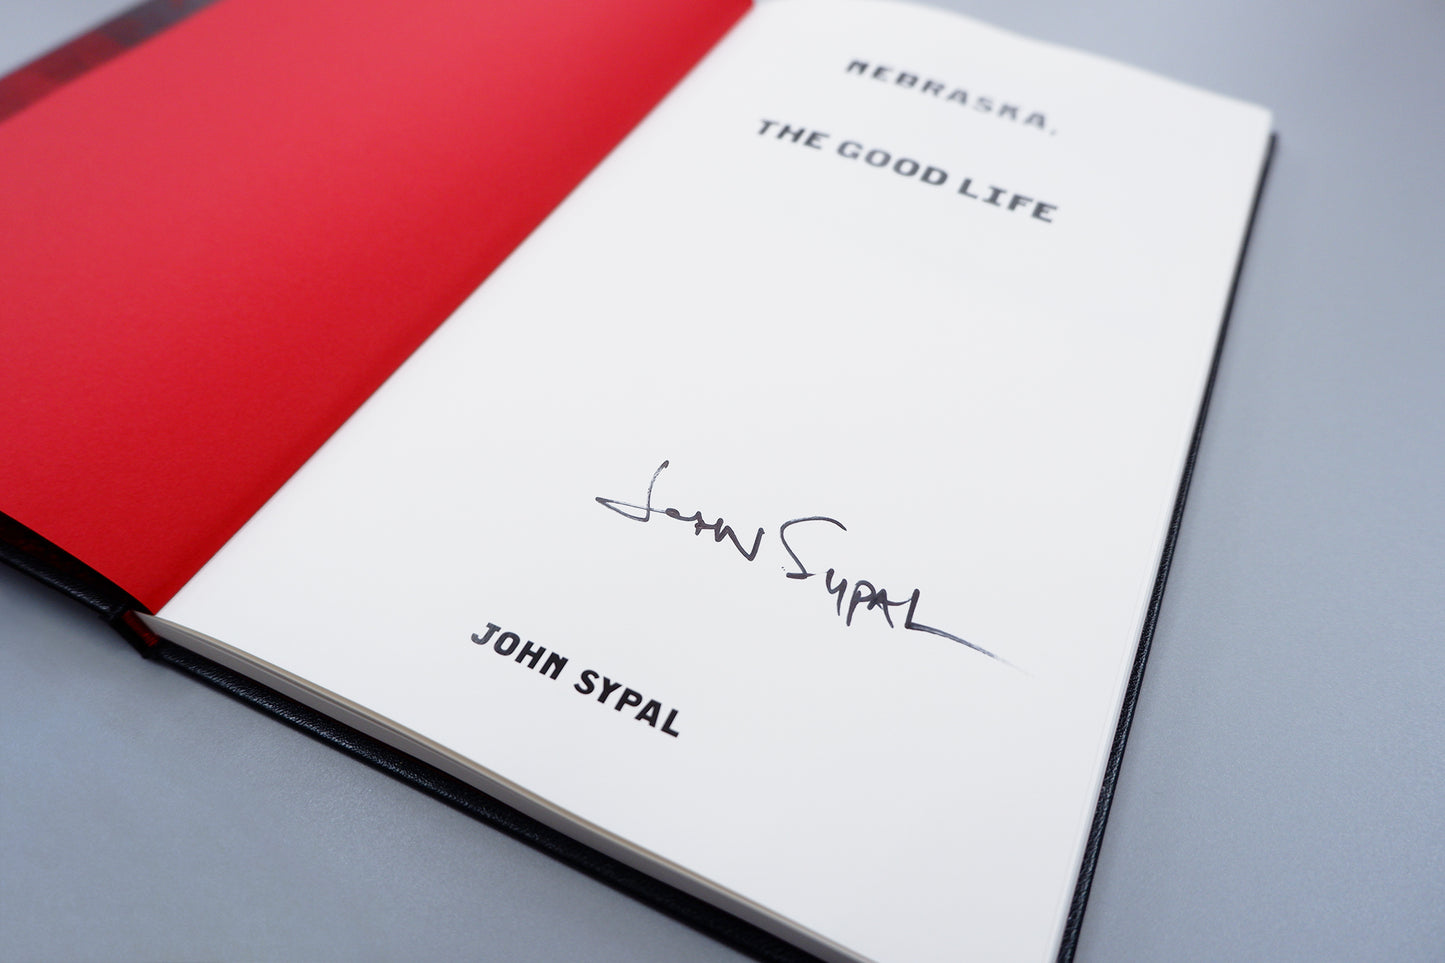 NEBRASKA,
THE GOOD LIFE
John Sypal
JOHN SYPAL